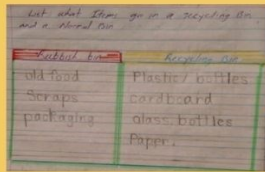 List what Items go in a recycling Bin
and a Normal Bin
Rubbish bin Recycling Bin
old food Plastic/ bottles
Scraps cardboard
packaging glass bottles
Paper.